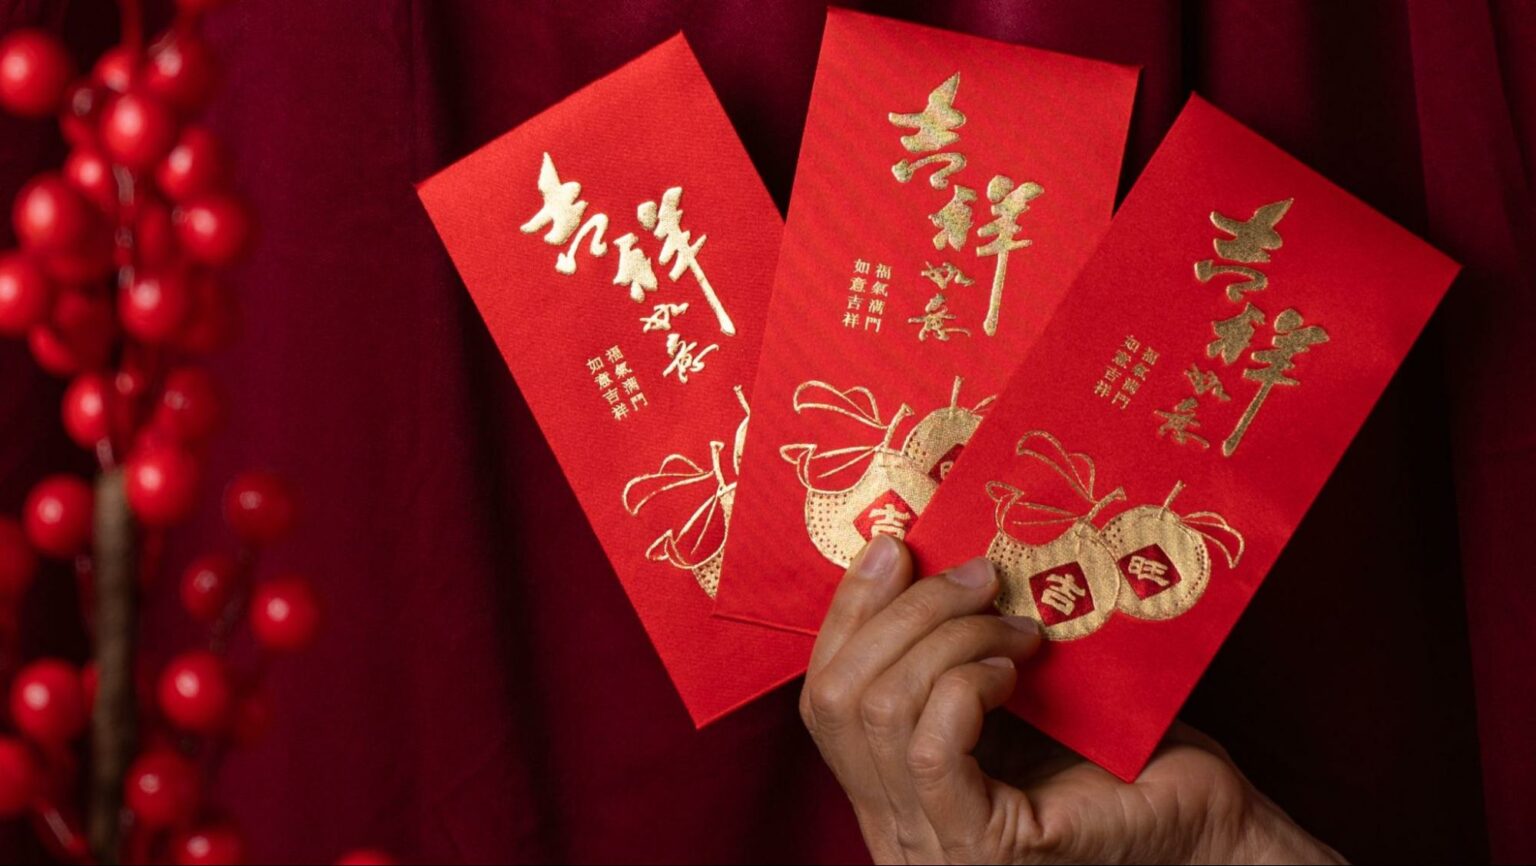 吉祥
如意
福氣满門
如意吉祥
吉祥
如意
福氣满門
如意吉祥
吉
吉祥
如意
福氣满門
如意吉祥
吉
旺